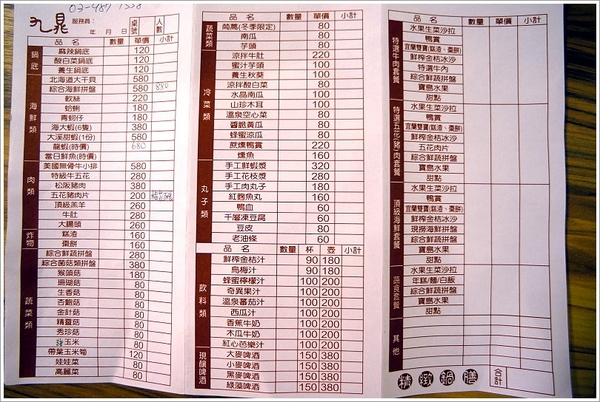 03-487
九鼎 服務員: 年 月 日 桌號 人數 小計
品名 數量 單價 小計
鍋底
麻辣鍋底 120
酸白菜鍋底 120
養生鍋底 120
海鮮類
北海道大干貝 580
綜合海鮮拼盤 580 880
軟絲 220
蛤蜊 180
青蚵仔 180
海大蝦(6隻) 380
大溪甜蝦(1份) 580
龍蝦(時價) 680
當日鮮魚(時價)
肉類
美國無骨牛小排 580
特級牛五花 280
松阪豬肉 380
五花豬肉片 200
頂級羔羊 260
牛肚 260
大腸頭 260
炸物
糕渣 260
棗餅 260
蔬菜類
綜合鮮蔬拼盤 380
綜合菌菇類拼盤 380
猴頭菇 180
珊瑚菇 80
生香菇 80
杏鮑菇 80
金針菇 80
精靈菇 80
秀珍菇 80
玉米 80
帶葉玉米筍 120
娃娃菜 80
高麗菜 80
蔬菜類
茼蒿(冬季限定) 80
南瓜 80
芋頭 80
冷菜類
涼拌牛肚 220
蜜汁芋頭 100
養生秋葵 100
涼拌酸白菜 80
水晶南瓜 100
山珍木耳 100
溫泉空心菜 80
香脆黃瓜 80
蜂蜜涼瓜 80
蔗燻鴨賞 320
燻魚 160
丸子類
手工鮮蝦漿 320
手工花枝漿 280
手工肉丸子 180
紅麴魚丸 160
鴨血 60
千層凍豆腐 60
豆皮 80
老油條 60
品名 數量 杯 壺 小計
飲料類
鮮榨金桔汁 90 180
烏梅汁 90 180
蜂蜜檸檬汁 100 200
奇異果汁 100 200
溫泉蕃茄汁 100 200
西瓜汁 100 200
香蕉牛奶 100 200
木瓜牛奶 100 200
紅心芭樂汁 100 200
現釀啤酒
大麥啤酒 150 380
小麥啤酒 150 380
黑麥啤酒 150 380
綠藻啤酒 150 380
品名 數量 單價 小計
特選牛肉套餐
水果生菜沙拉
鴨賞
宜蘭雙寶(糕渣、棗餅)
鮮榨金桔冰沙
特選牛肉
綜合鮮蔬拼盤
寶島水果
甜點
特選五花(豬)肉套餐
水果生菜沙拉
鴨賞
宜蘭雙寶(糕渣、棗餅)
鮮榨金桔冰沙
五花肉片
綜合鮮蔬拼盤
寶島水果
甜點
頂級海鮮套餐
水果生菜沙拉
鴨賞
宜蘭雙寶(糕渣、棗餅)
鮮榨金桔冰沙
現撈海鮮拼盤
綜合鮮蔬拼盤
寶島水果
甜點
蔬食套餐
水果生菜沙拉
年糕/麵/白飯
綜合鮮蔬拼盤
寶島水果
甜點
其他
精緻鍋膳 合計